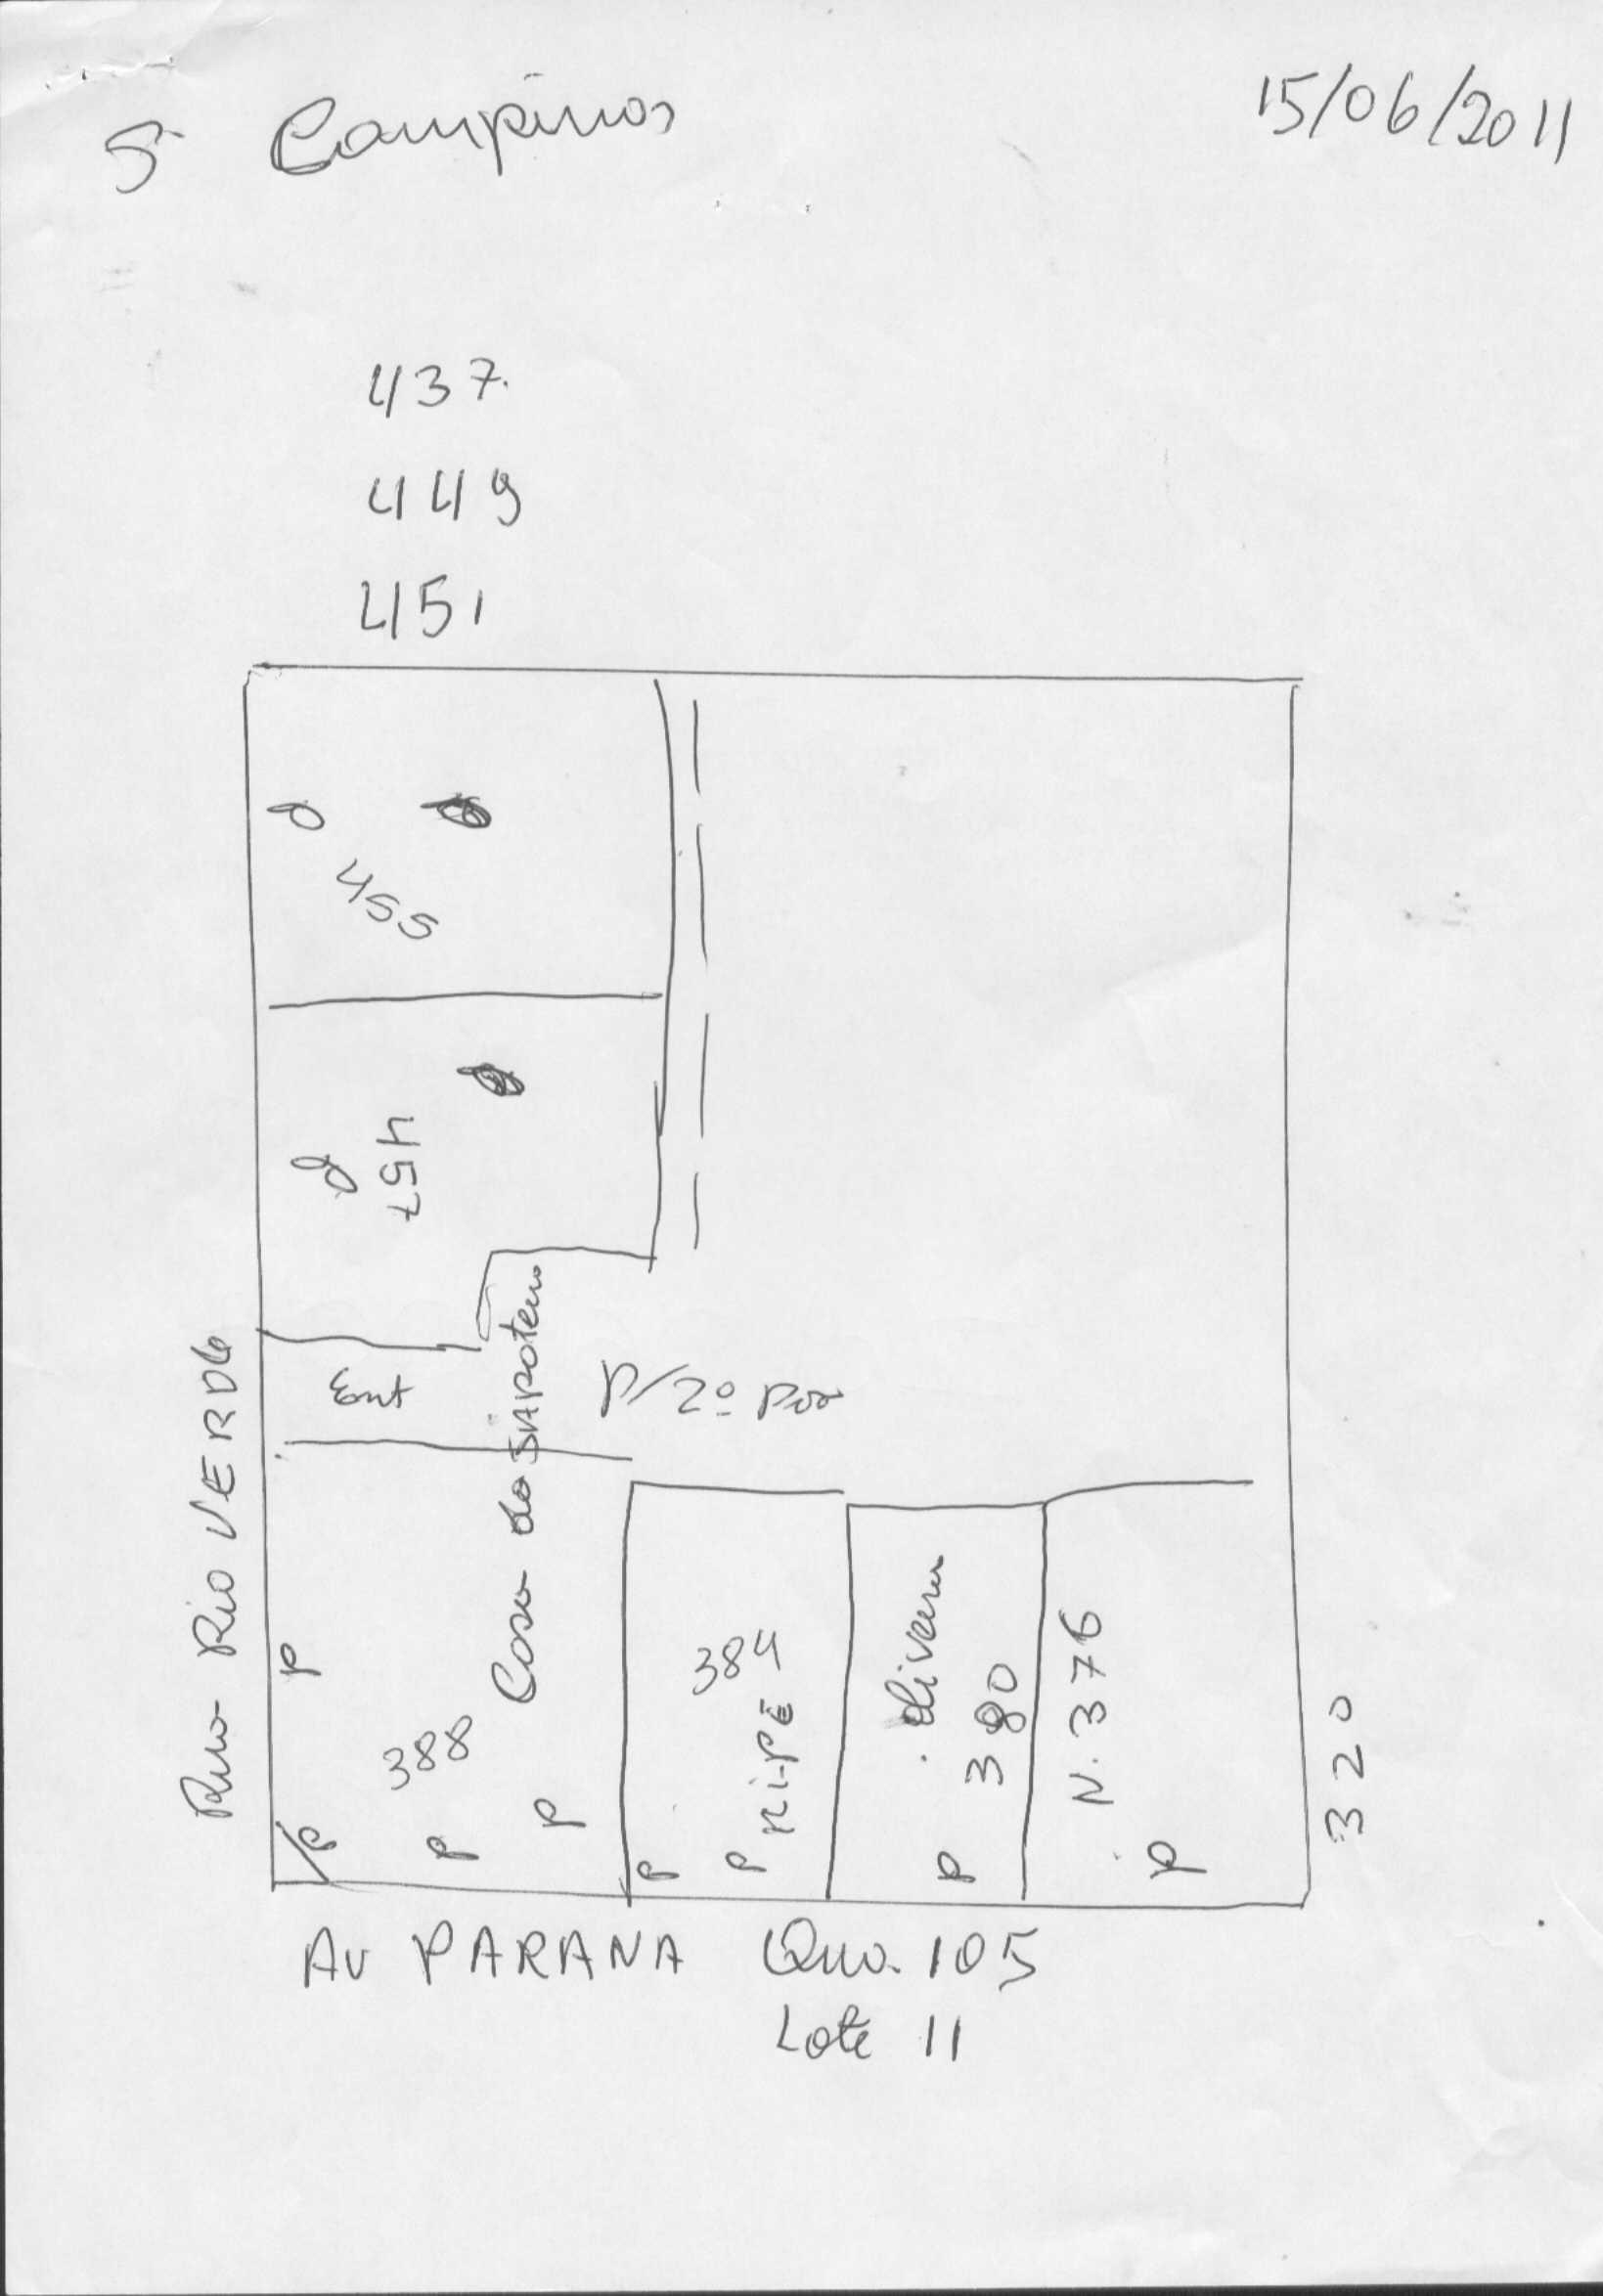 Sr Campinos
15/06/2011
437.
449
451
P
455
P
457
Rua Rio VERDE
Ent
P/2º Pav
Casa do
P
388
P
P
P
384
Ki-PÉ
P
P
Oliveira
380
P
N. 376
P
320
AV PARANA Qua. 105
Lote 11